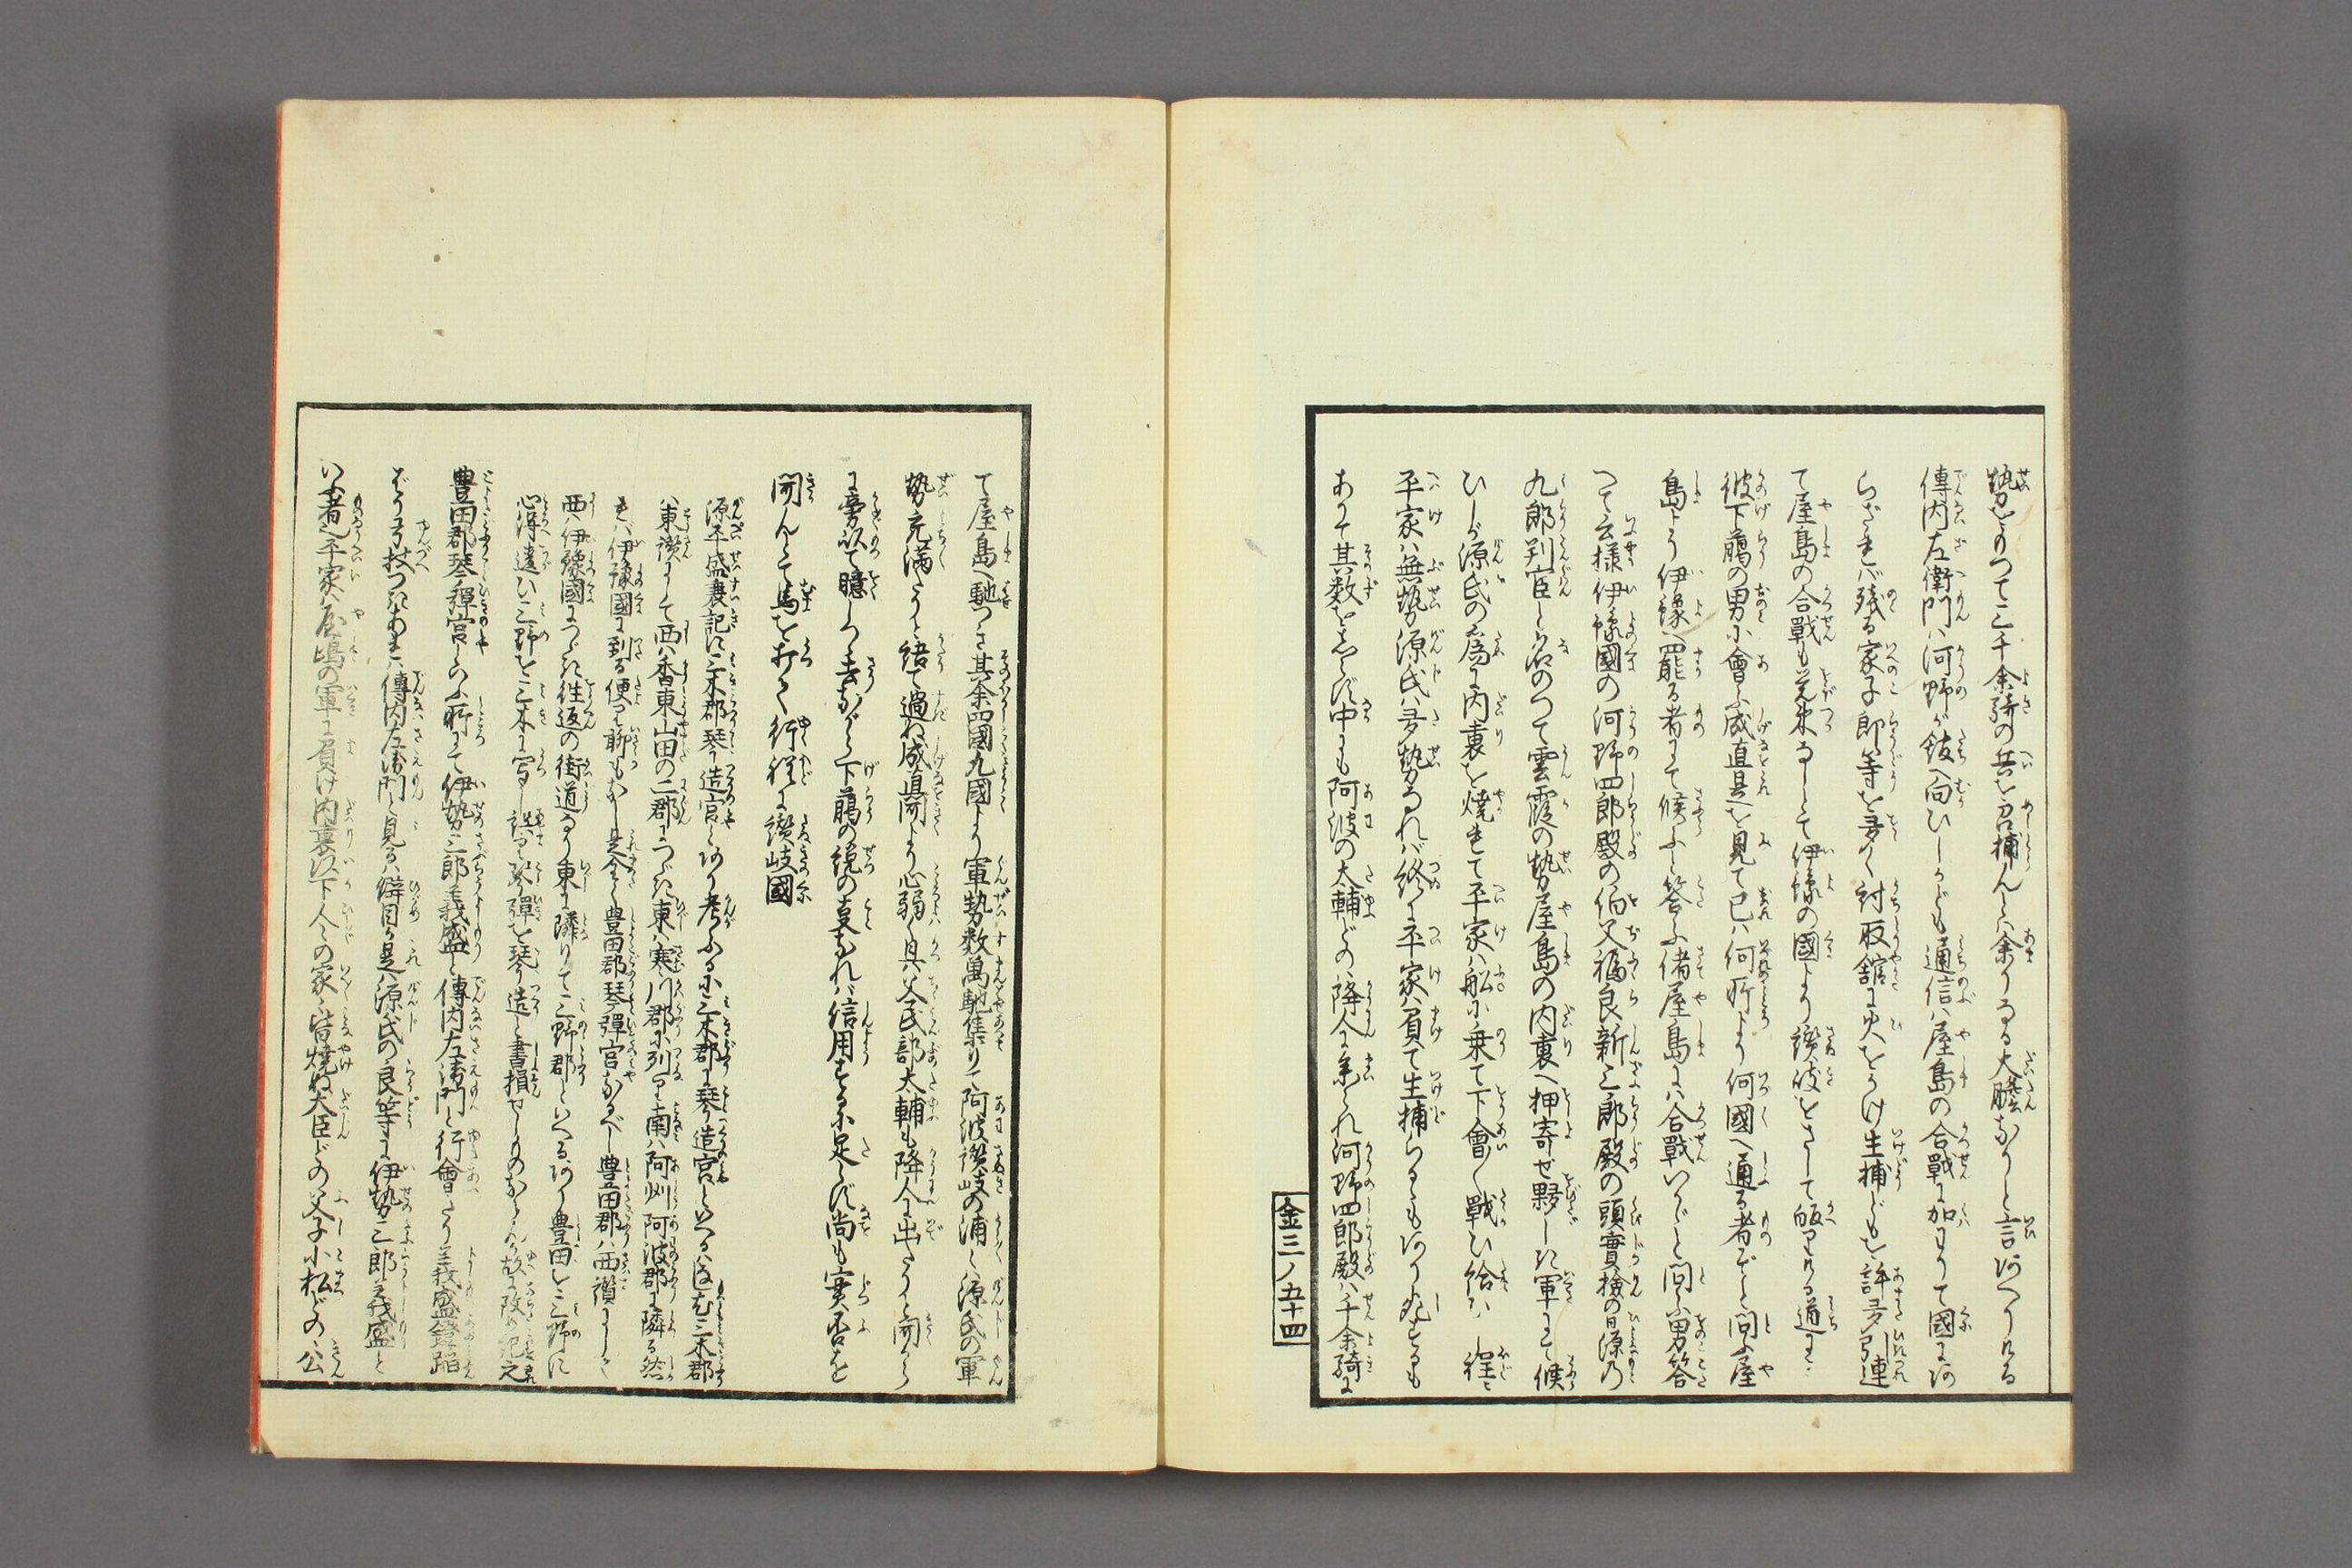 勢をもつて三千余騎の兵を召捕んとハ余りなる大膽なりと言あへりける
傳内左衛門ハ河野が舘へ向ひしかども通信ハ屋島の合戦に加はりて國にあ
らざれバ残る家子郎等を多く討取舘に火をかけ生捕ども許多引連
て屋島の合戦も覚束なしとて伊豫の國より讃岐をさして皈りける道にて
彼下﨟の男に會ふ成直是を見て已ハ何所より何國へ通る者ぞと問ふ屋
島より伊豫へ罷る者にて候ふと答ふ偖屋島にハ合戦いかにと問ふ男答
へて云様伊豫國の河野四郎殿の伯父福良新三郎殿の頭實撿の日源乃
九郎判官と名のつて雲霞の勢屋島の内裏へ押寄せ夥しき軍にて候
ひしが源氏の為に内裏を焼れて平家ハ船に乗て下會〱戦ひ給ハ程に
平家ハ無勢源氏ハ多勢なれバ終に平家ハ負て生捕らるゝもあり死するも
ありて其数をしらず中にも阿波の大輔どの降人に参られ河野四郎殿ハ千余騎に
金三ノ五十四
て屋島へ馳つき其余四國九國より軍勢数萬馳集りて阿波讃岐の浦〱源氏の軍
勢充満たりと語て過ね成直聞より心弱〱具ハ父民部大輔も降人に出たりと聞から
に旁以て臆しつゝ去ながら下﨟の説の事なれバ信用するに足らず尚も実否を
聞んとて馬を打て行程に讃岐國
源平盛衰記に三木郡琴造宮とあり考ふるに三木郡に琴造宮といへるハなし三木郡
ハ東讃にて西ハ香東山田の二郡につゞき東ハ寒川郡に列り南ハ阿州阿波郡に隣る然
れバ伊豫國に到る便り聊もなし是全く豊田郡琴彈宮なるべし豊田郡ハ西讃にして
西ハ伊豫國につゞき往返の街道なり東に隣りて三野郡といへるあり豊田を三野に
心得違ひ三野を三木に写し誤り琴彈を琴造と書損ぜしものならん故に改め記之
豊田郡琴彈宮といふ所にて伊勢三郎義盛と傳内左衛門と行會たり義盛鐙踏
ばり弓杖つきあれハ傳内左衛門と見るハ僻目か是ハ源氏の良等に伊勢三郎義盛と
いふ者也平家ハ屋嶋の軍に負け内裏以下人〱の家〱皆燒ぬ大臣どの父子小松どの公